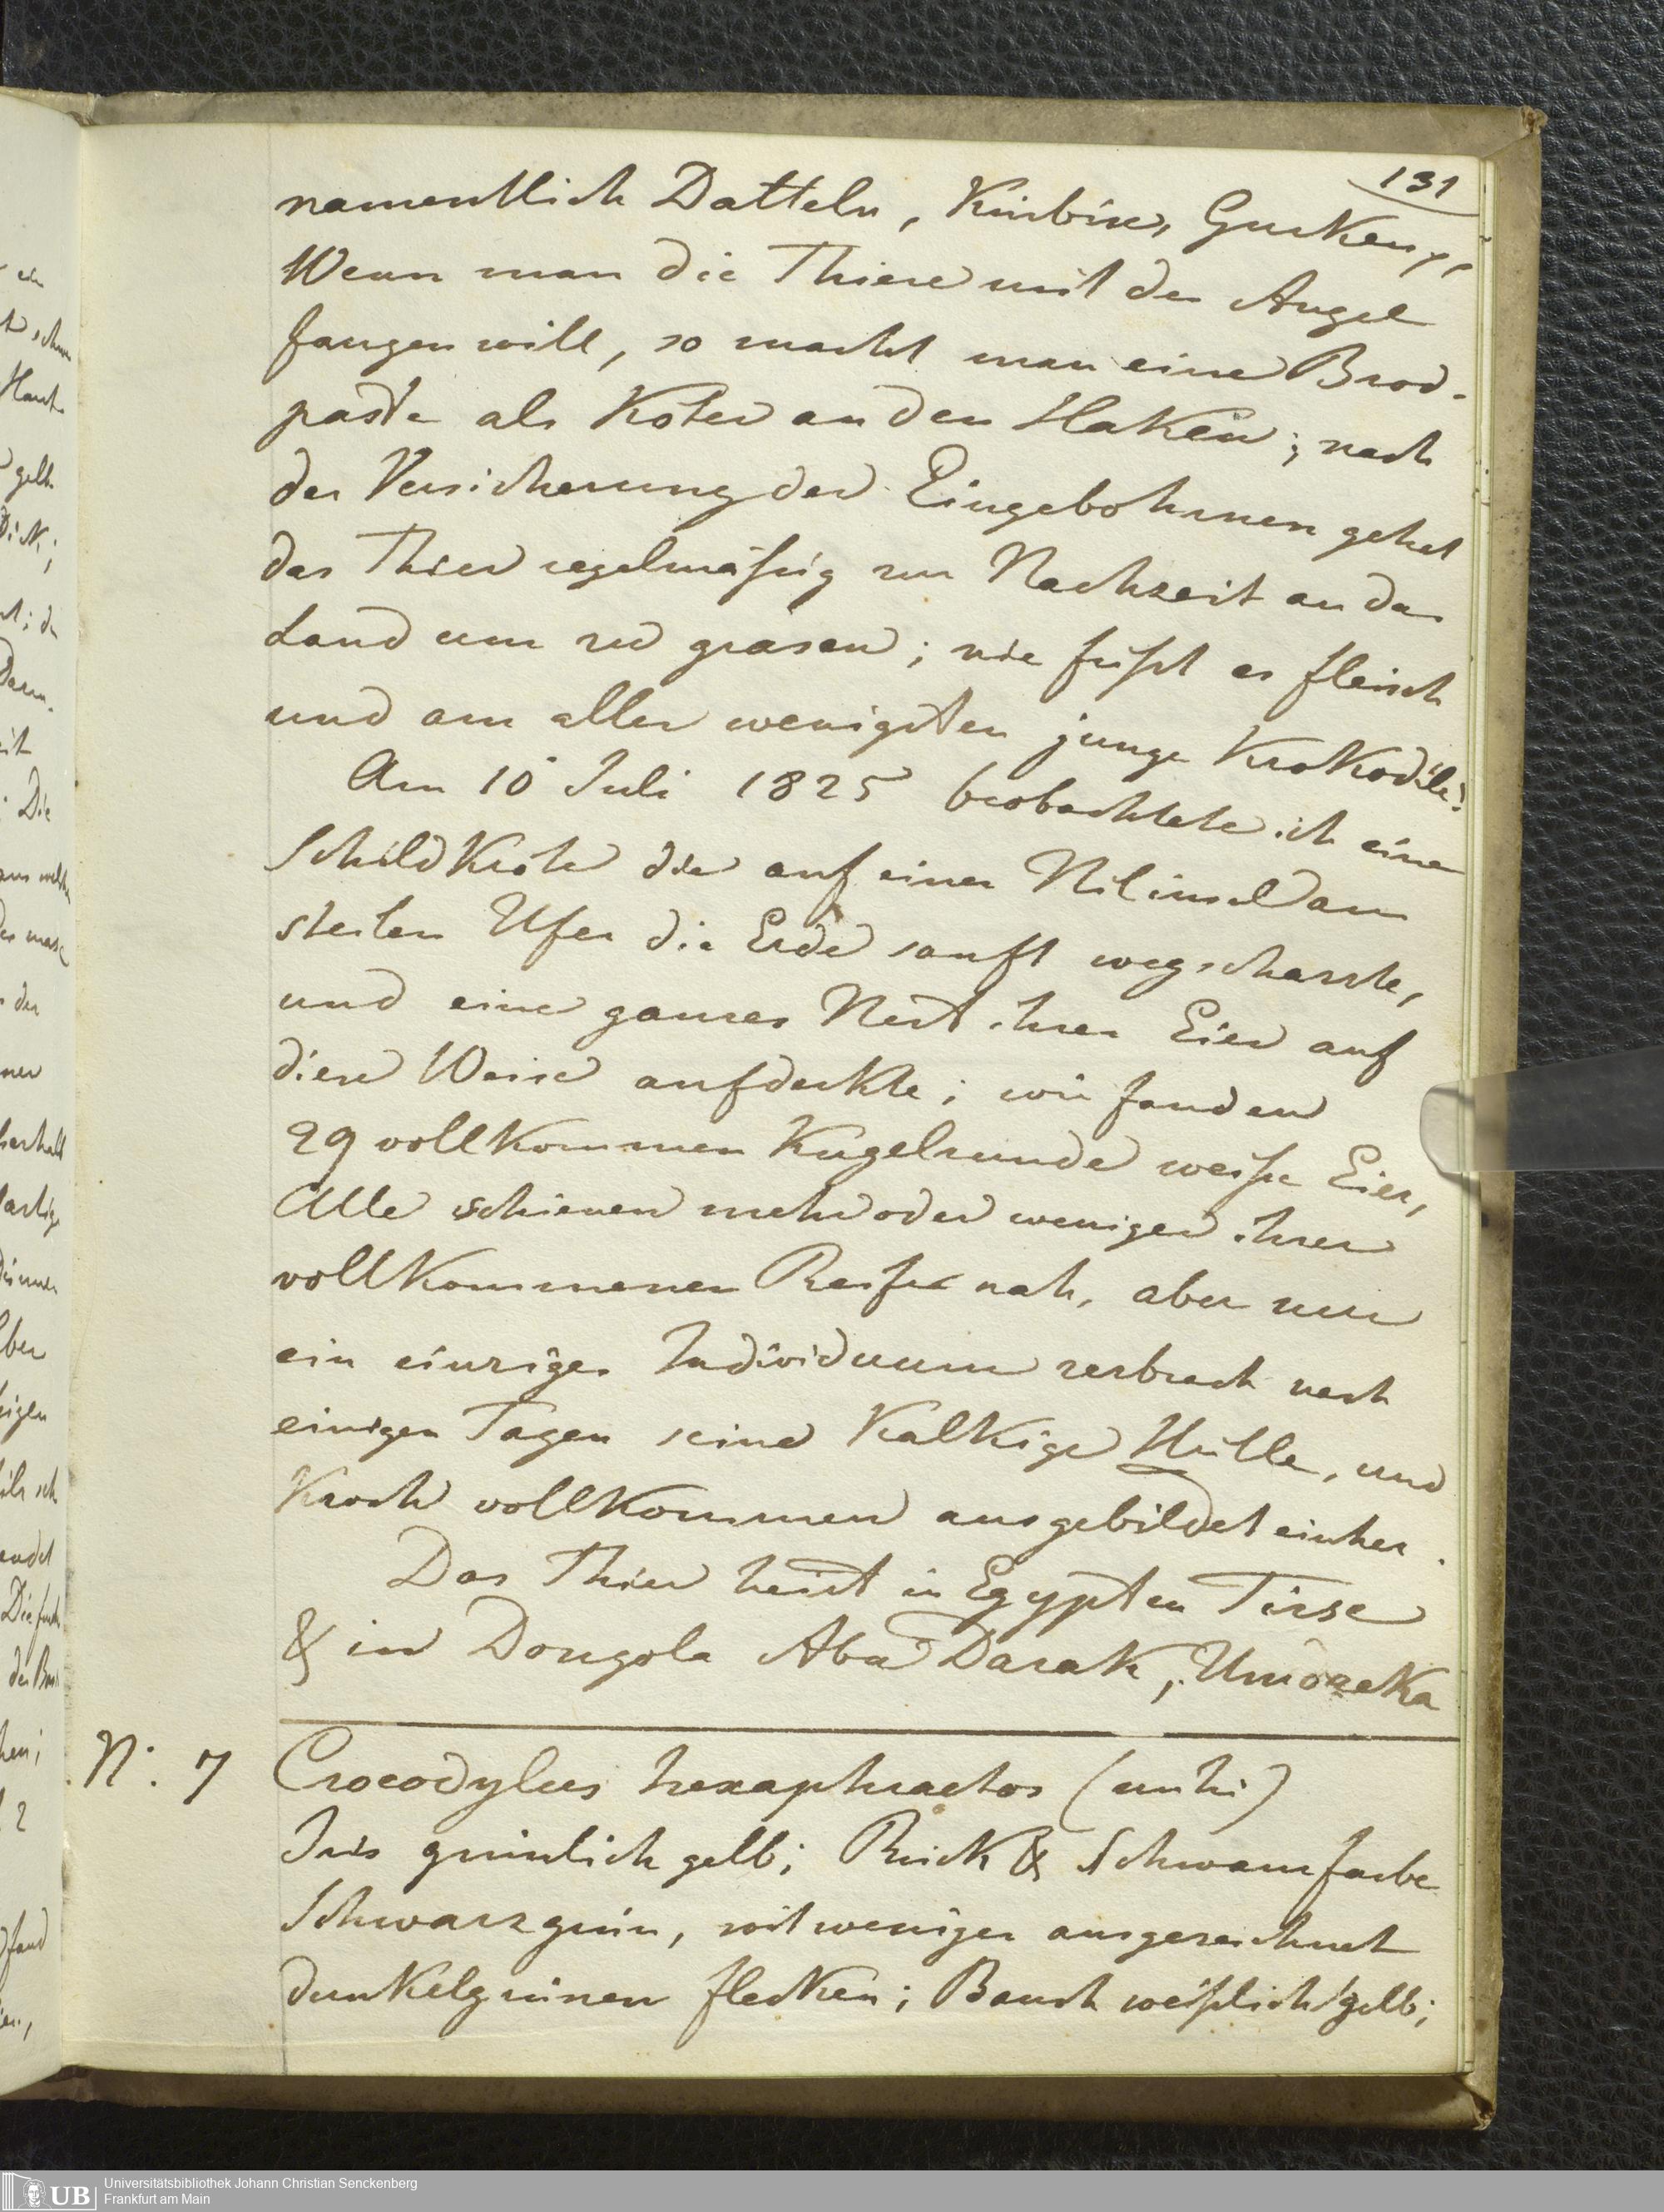 131
namentlich Datteln, Kürbise, Gurken,
Wenn man die Thiere mit der Angel
fangen will, so macht man eine Brod-
paste als Köter an den Haken; nach
der Versicherung der Eingebohrnen gehet
das Thier regelmäßig zur Nachzeit an das
Land um zu grasen; nie frißt es Fleisch
und am aller wenigsten junge Krokodile!
Am 10 Juli 1825 beobachtete ich eine
Schildkröte die auf einer Nilinsel am
steilen Ufer die Erde sanft wegscharrte,
und eine ganzes Nest ihrer Eier auf
diese Weise aufdeckte; wir fanden
29 vollkommen Kugelrunde weiße Eier,
Alle schienen mehr oder weniger ihrer
vollkommenen Reife nah, aber nur
ein einziges Individuum zerbrach nach
einigen Tagen seine Kalkige Hülle, und
Kroch vollkommen ausgebildet einher.
Das Thier heist in Egypten Tirse
& in Dongola Abu Darak,
N: 7 Crocodylus hexaphractos (mihi)
Iris grünlich gelb; Rück & Schwanzfarbe
Schwarzgrün, mit weniger ausgezeichnet
dunkelgrünen Flecken; Bauch weißlich gelb;
Universitätsbibliothek Johann Christian Senckenberg
Frankfurt am Main
UB